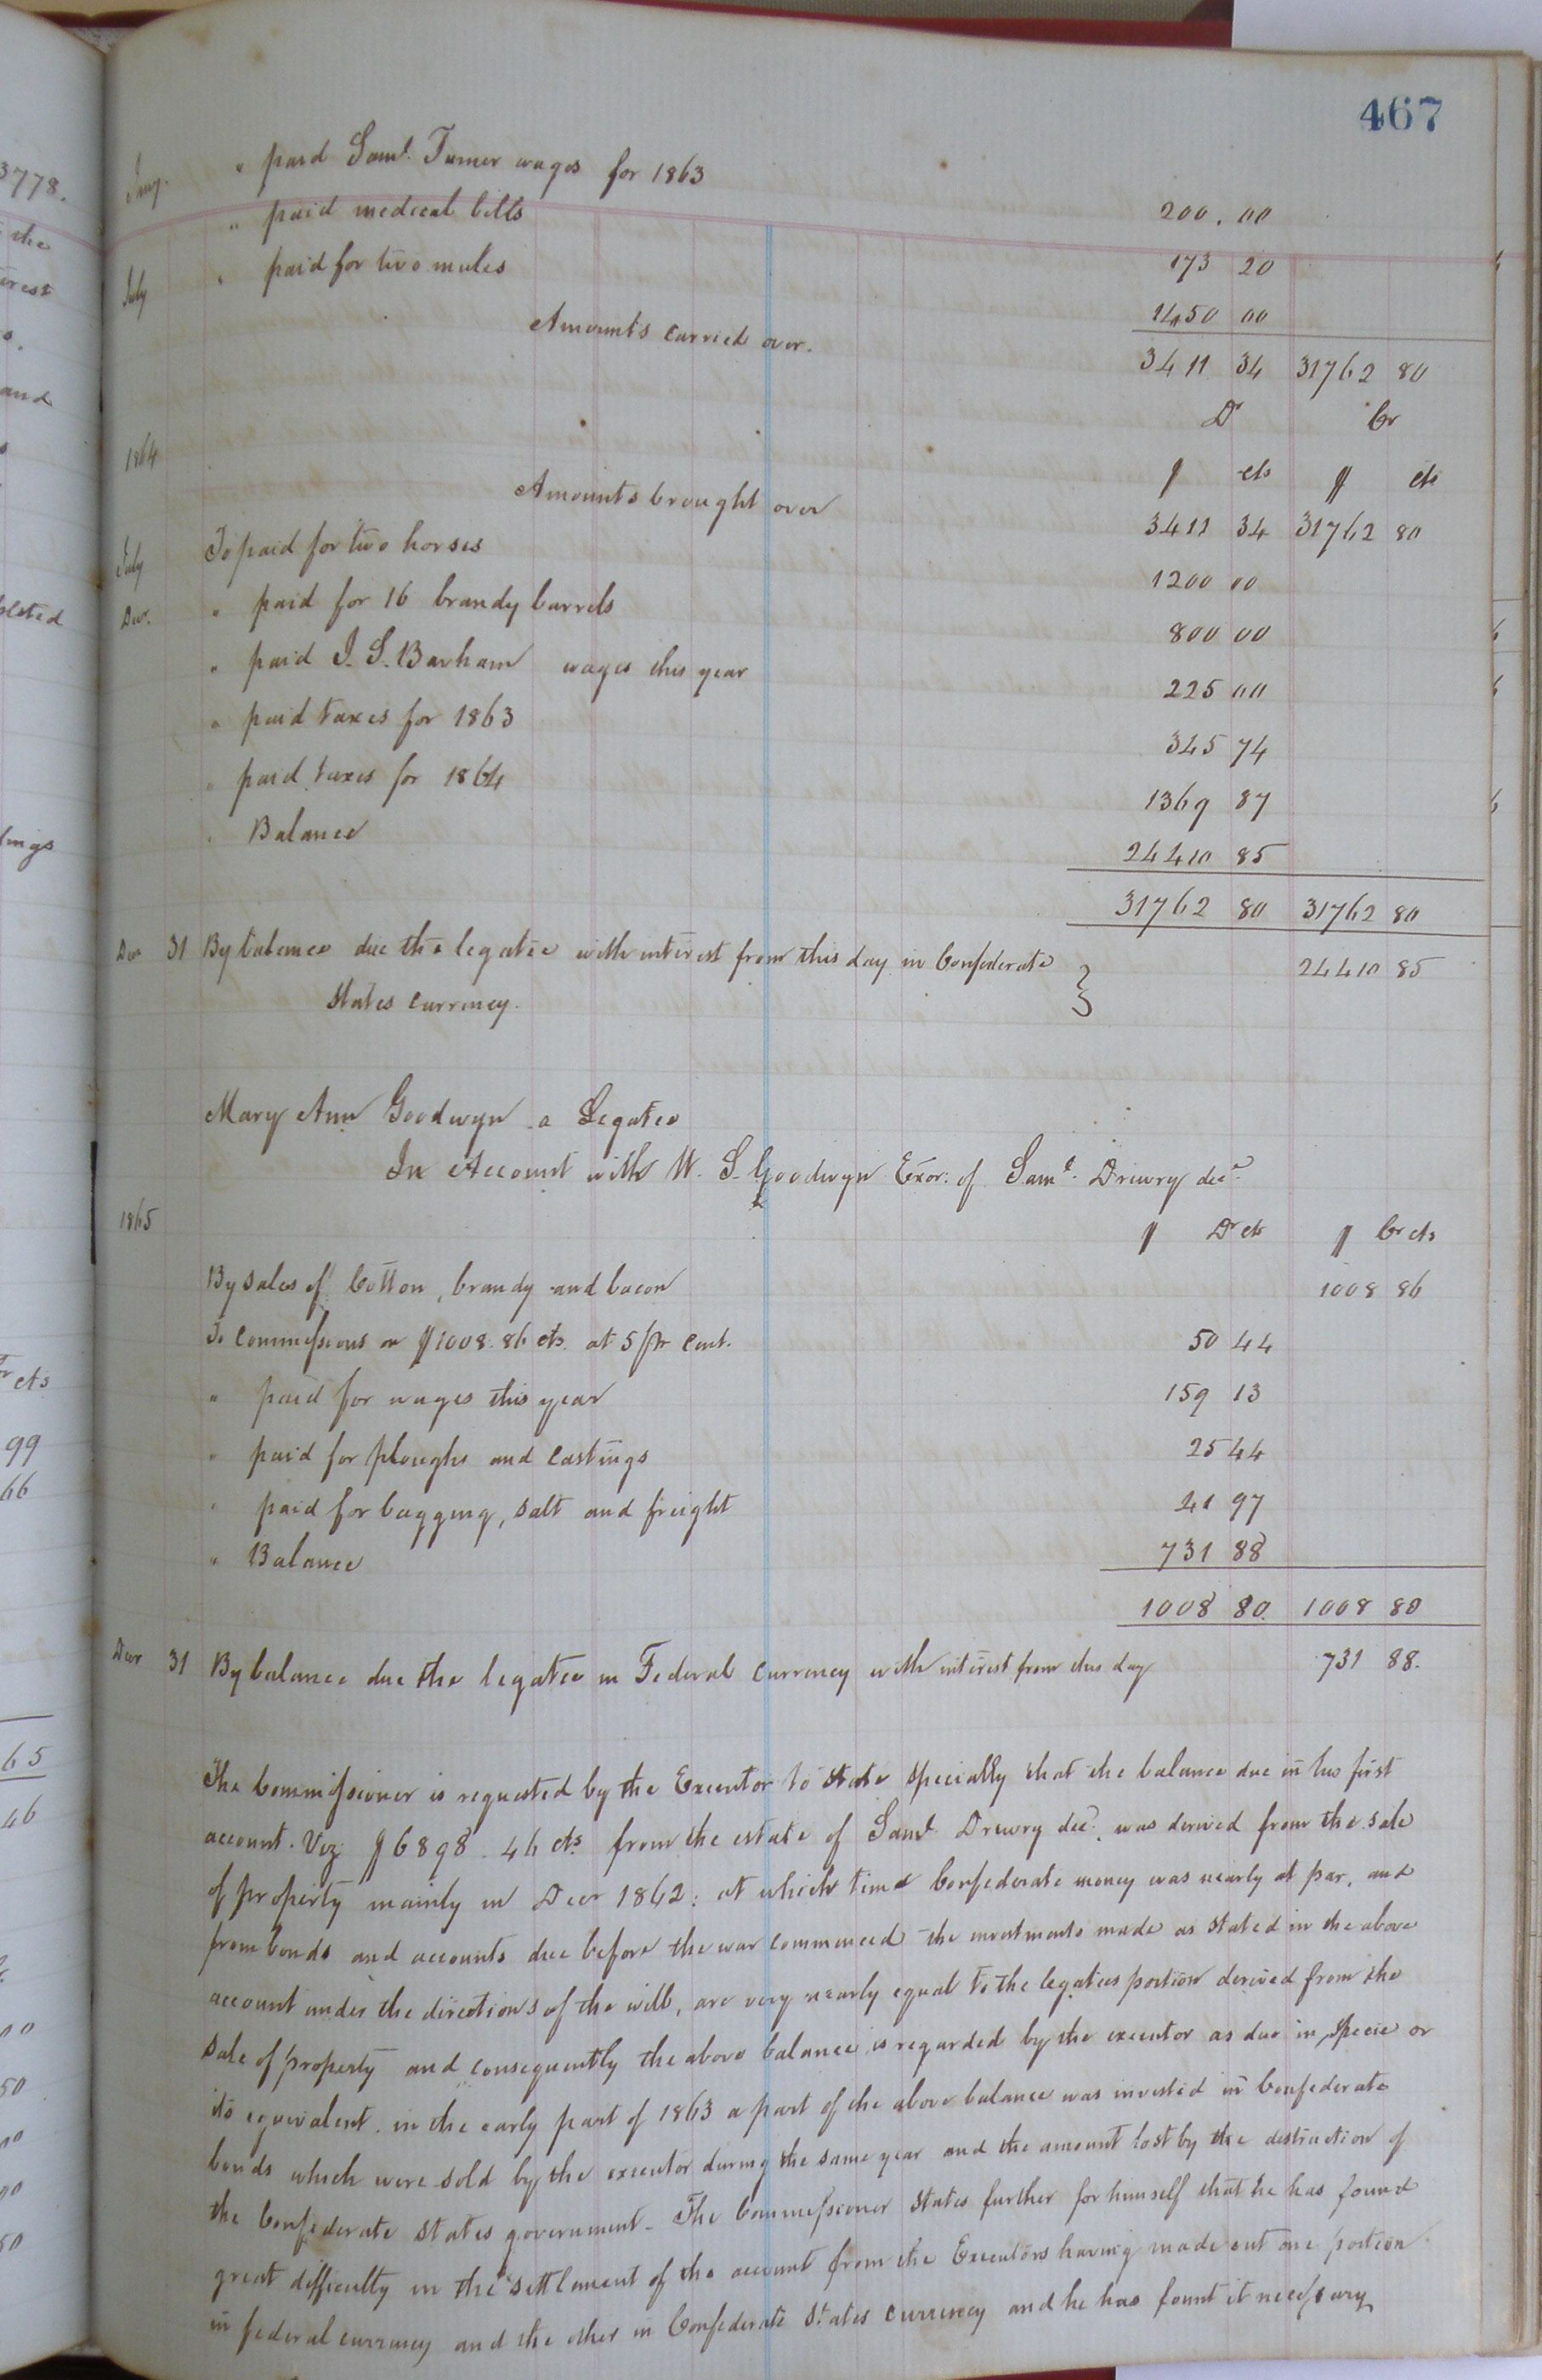 467
Jany. " paid Saml. Turner wages for 1863 200.00
" paid medical bills 173 20
July " paid for two mules 1450 00
Amounts carried over. 3411 34 31762 80
Dr Cr
1864 $ cts $ cts
Amounts brought over 3411 34 31762 80
July To paid for two horses 1200 00
Decr. " paid for 16 brandy barrels 800 00
" paid J. S. Barham wages this year 225 00
" paid taxes for 1863 345 74
" paid taxes for 1864 1369 87
" Balance 24410 85
31762 80 31762 80
Decr 31 By balance due the legatee with interest from this day in Confederate } 24410 85
States currency.
Mary Ann Goodwyn a Legatee
In Account with W. S. Goodwyn Exor: of Saml. Drewry decd.
1865 $ Dr cts $ Cr cts
By sales of Cotton, brandy and bacon 1008 86
To Commissions on $1008.86 cts. at 5 pr cent. 50 44
" paid for wages this year 159 13
" paid for ploughs and castings 25 44
" paid for bagging, salt and freight 41 97
" Balance 731 88
1008 80 1008 80
Decr 31 By balance due the legatee in Federal currency with interest from this day 731 88.
The Commissioner is requested by the Executor to state specially that the balance due in his first
account. Viz $6898.46 cts from the estate of Saml. Drewry decd. was derived from the sale
of property mainly in Decr 1862: at which time Confederate money was nearly at par, and
from bonds and accounts due before the war commenced the investments made as stated in the above
account under the directions of the will, are very nearly equal to the legatees portion derived from the
sale of property and consequently the above balance is regarded by the executor as due in specie or
its equivalent. in the early part of 1863 a part of the above balance was invested in Confederate
bonds which were sold by the executor during the same year and the amount lost by the destruction of
the Confederate States government - The Commissioner states further for himself that he has found
great difficulty in the settlement of the account from the Executors having made out one portion
in federal currency and the other in Confederate States currency and he has fount it necessary
3778.
the
and
99
66
65
46
00
50